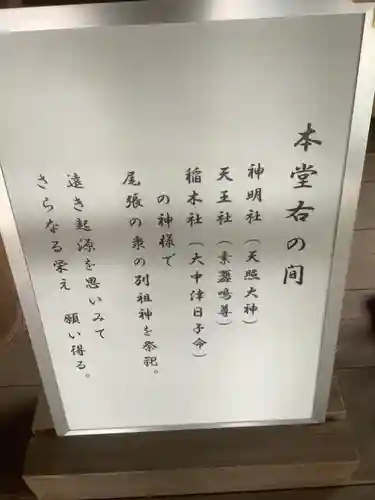 本堂右の間
神明社（天照大神）
天王社（素盞嗚尊）
稲木社（大中津日子命）
の神様で
尾張の衆の別祖神を祭祀。
遠き起源を思いみて
さらなる栄え　願い得る。